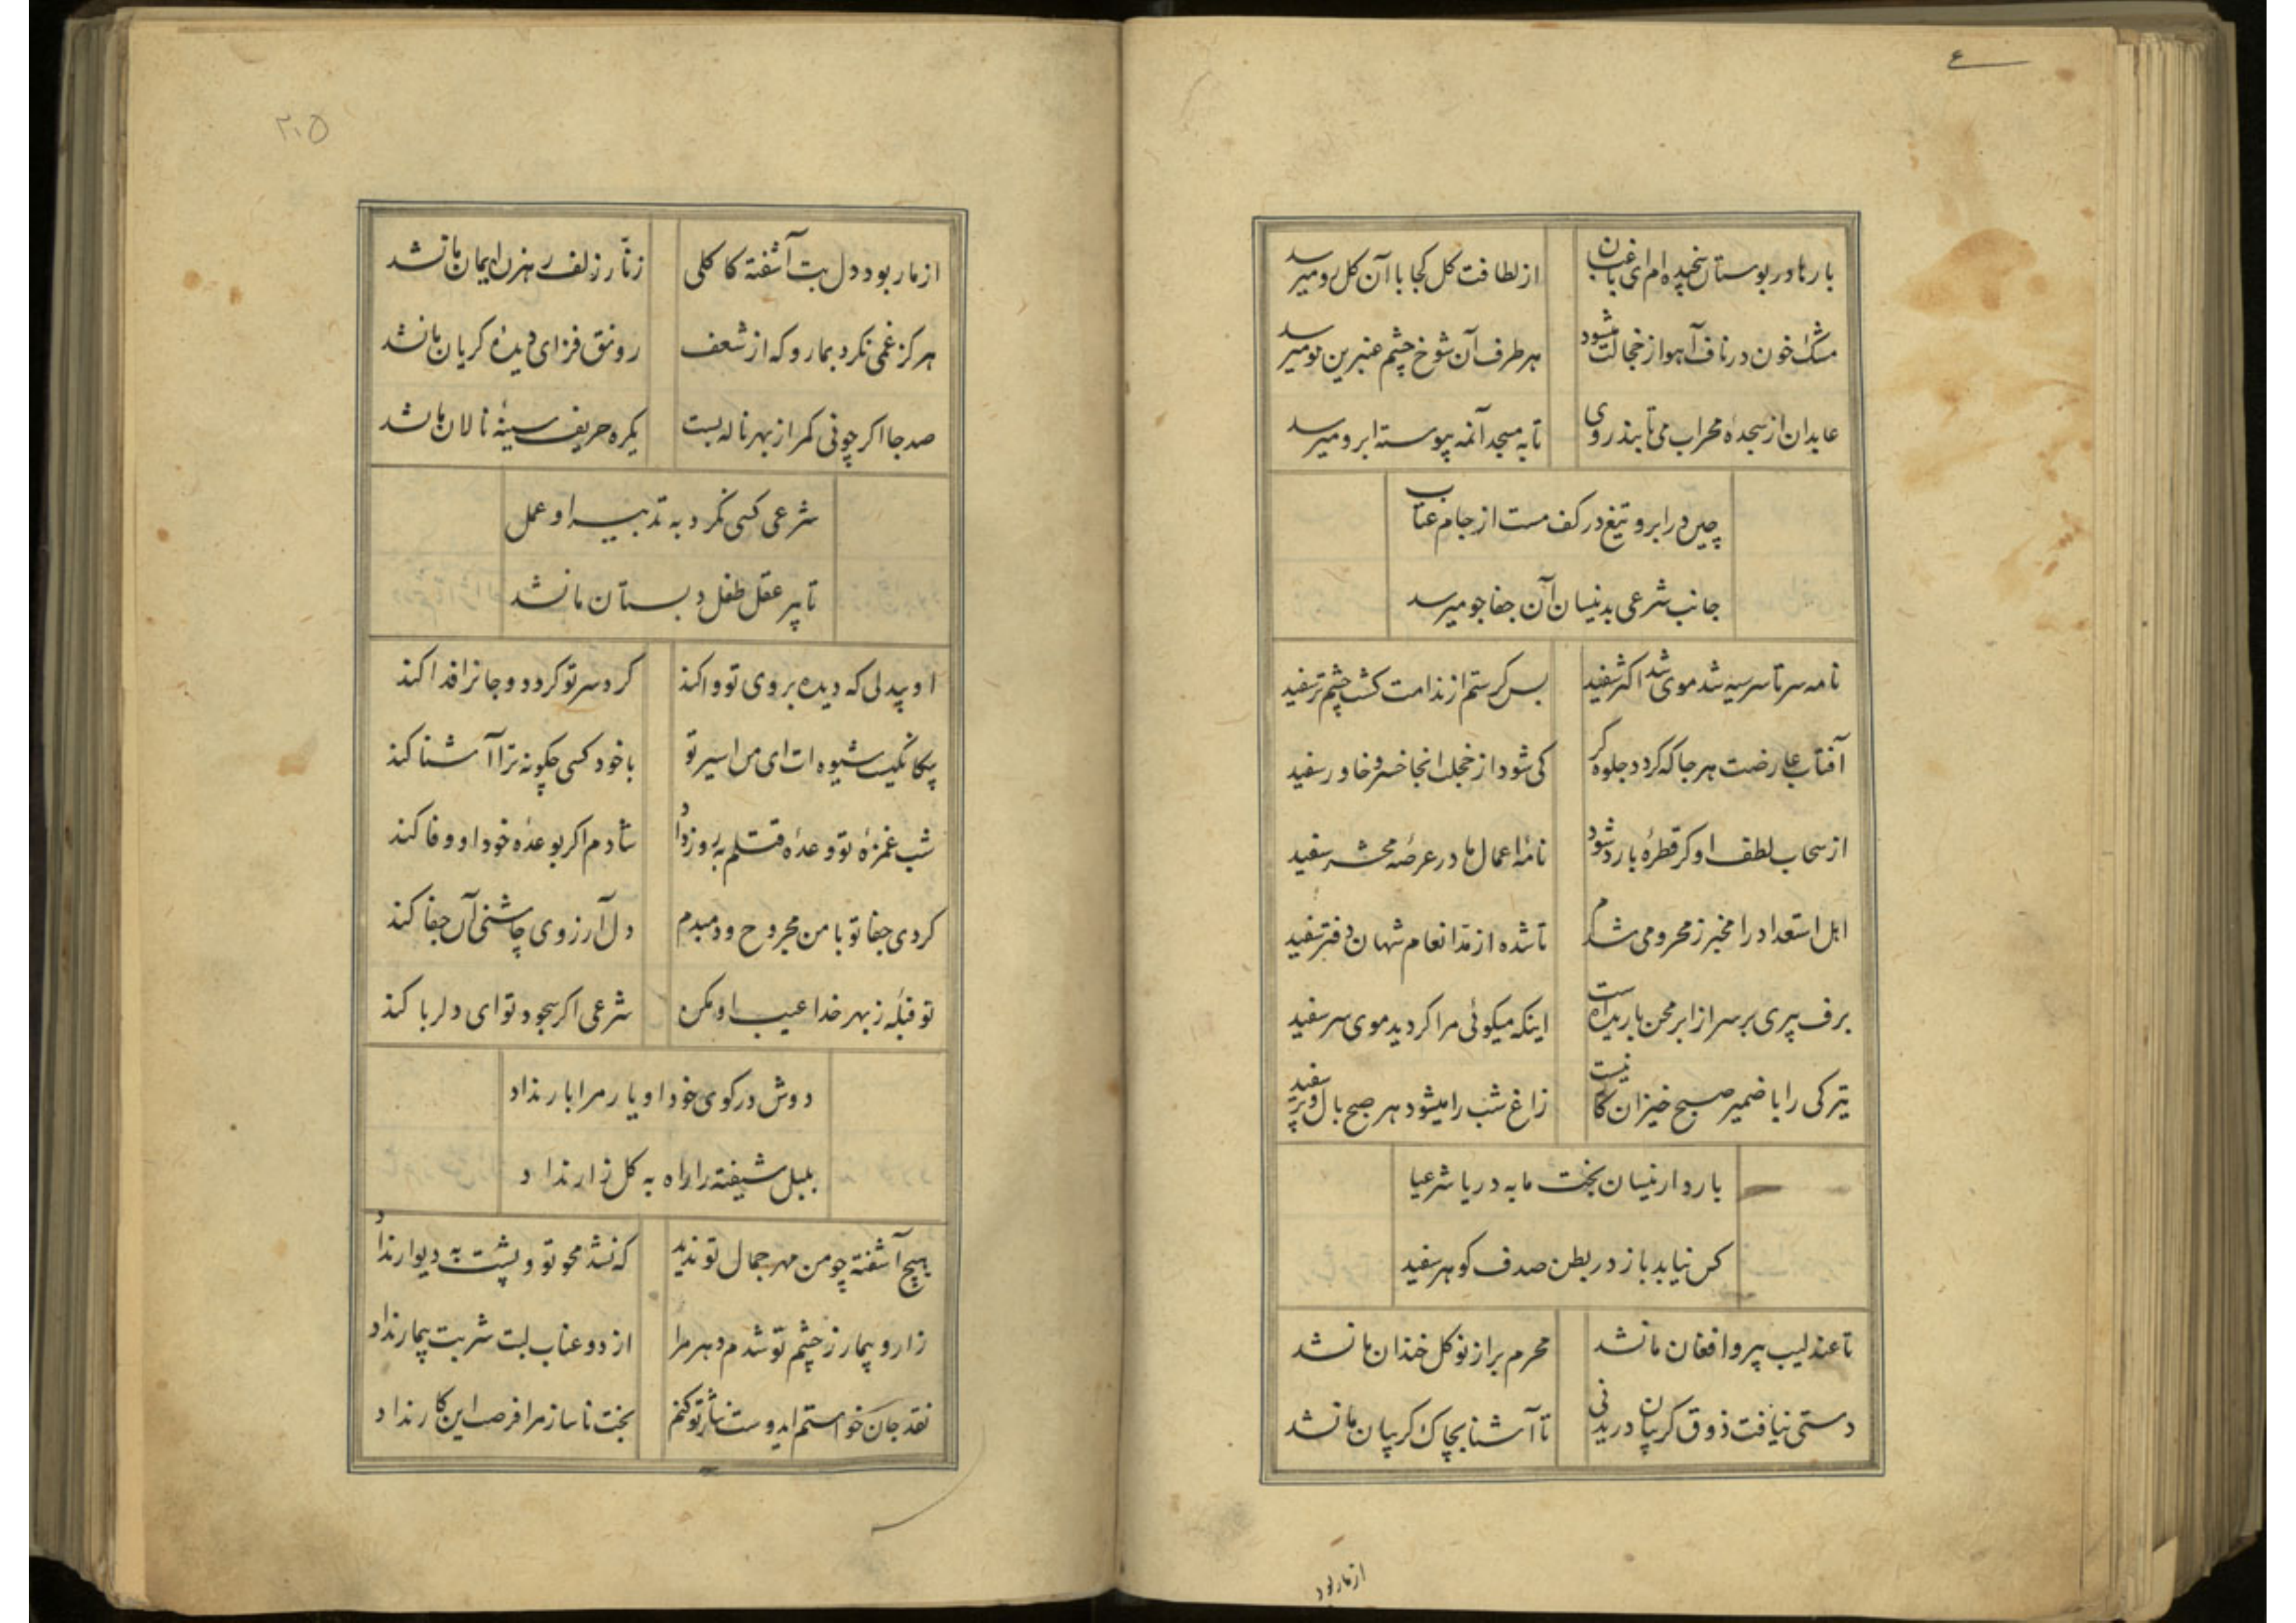 ع
بارها در بوستان سنجیده ام ای باغبان از لطافت کل کجا با آن کل رو میرسد
مشک خون در ناف آهو از خجالت میشود هر طرف آن شوخ چشم عنبرین مو میرسد
عابدان از سجدهٔ محراب می تابند روی تا به مسجد آنمه پیوسته ابرو میرسد
چین در ابرو تیغ در کف مست از جام عتاب
جانب شرعی بدنیسان آن جفا جو میرسد
نامه سر تا سر سیه شد موی شد اکثر سفید بس کرستم از ندامت کشت چشم تر سفید
آفتاب عارضت هر جا که کردد جلوه کر کی شود از خجلت انجا خسرو خاور سفید
از سحاب لطف او کر قطرهٔ بارد شود نامهٔ اعمال ما در عرصهٔ محشر سفید
اهل استعداد را مخبر ز محرومی شدم تا شده از مد انعام شهان دفتر سفید
برف پیری بر سر از ابر محن باریده است اینکه میکوئی مرا کردید موی سر سفید
تیرکی را با ضمیر صبح خیزان کار نیست زاغ شب را میشود هر صبح بال و پر سفید
بارد ار نیسان بخت ما به دریا شرعیا
کس نیابد باز در بطن صدف کوهر سفید
تا عندلیب پیرو افغان ما نشد محرم براز نو کل خندان ما نشد
دستی نیافت ذوق کریبان دریدنی تا آشنا بچاک کریبان ما نشد
از ما ربود
۲۰۵
از ما ربود دل بت آشفته کاکلی زنار زلف رهزن ایمان ما نشد
هرکز غمی نکرد بما رو که از شعف رونق فزای دیدهٔ کریان ما نشد
صد جا اکر چو نی کمر از بهر ناله بست یکره حریف سینهٔ نالان ما نشد
شرعی کسی نکرد به تدبیر او عمل
تا پیر عقل طفل دبستان ما نشد
او بیدلی که دیده بروی تو وا کند کرد سر تو کردد و جانرا فدا کند
بیکانکیست شیوه ات ای من اسیر تو با خود کسی چکونه ترا آشنا کند
شب غمزهٔ تو وعدهٔ قتلم به روز داد شادم اکر بوعدهٔ خود او وفا کند
کردی جفا تو با من مجروح و دمبدم دل آرزوی چاشنی آن جفا کند
تو قبلهٔ ز بهر خدا عیب او مکن شرعی اکر سجود تو ای دلربا کند
دوش در کوی خود او یار مرا بار نداد
بلبل شیفته را راه به کلزار نداد
هیچ آشفته چو من مهر جمال تو ندید که نشد محو تو و پشت به دیوار نداد
زار و بیمار ز چشم تو شدم دهر مرا از دو عناب لبت شربت بیمار نداد
نقد جان خواستم ایدوست نثار تو کنم بخت ناساز مرا فرصت این کار نداد